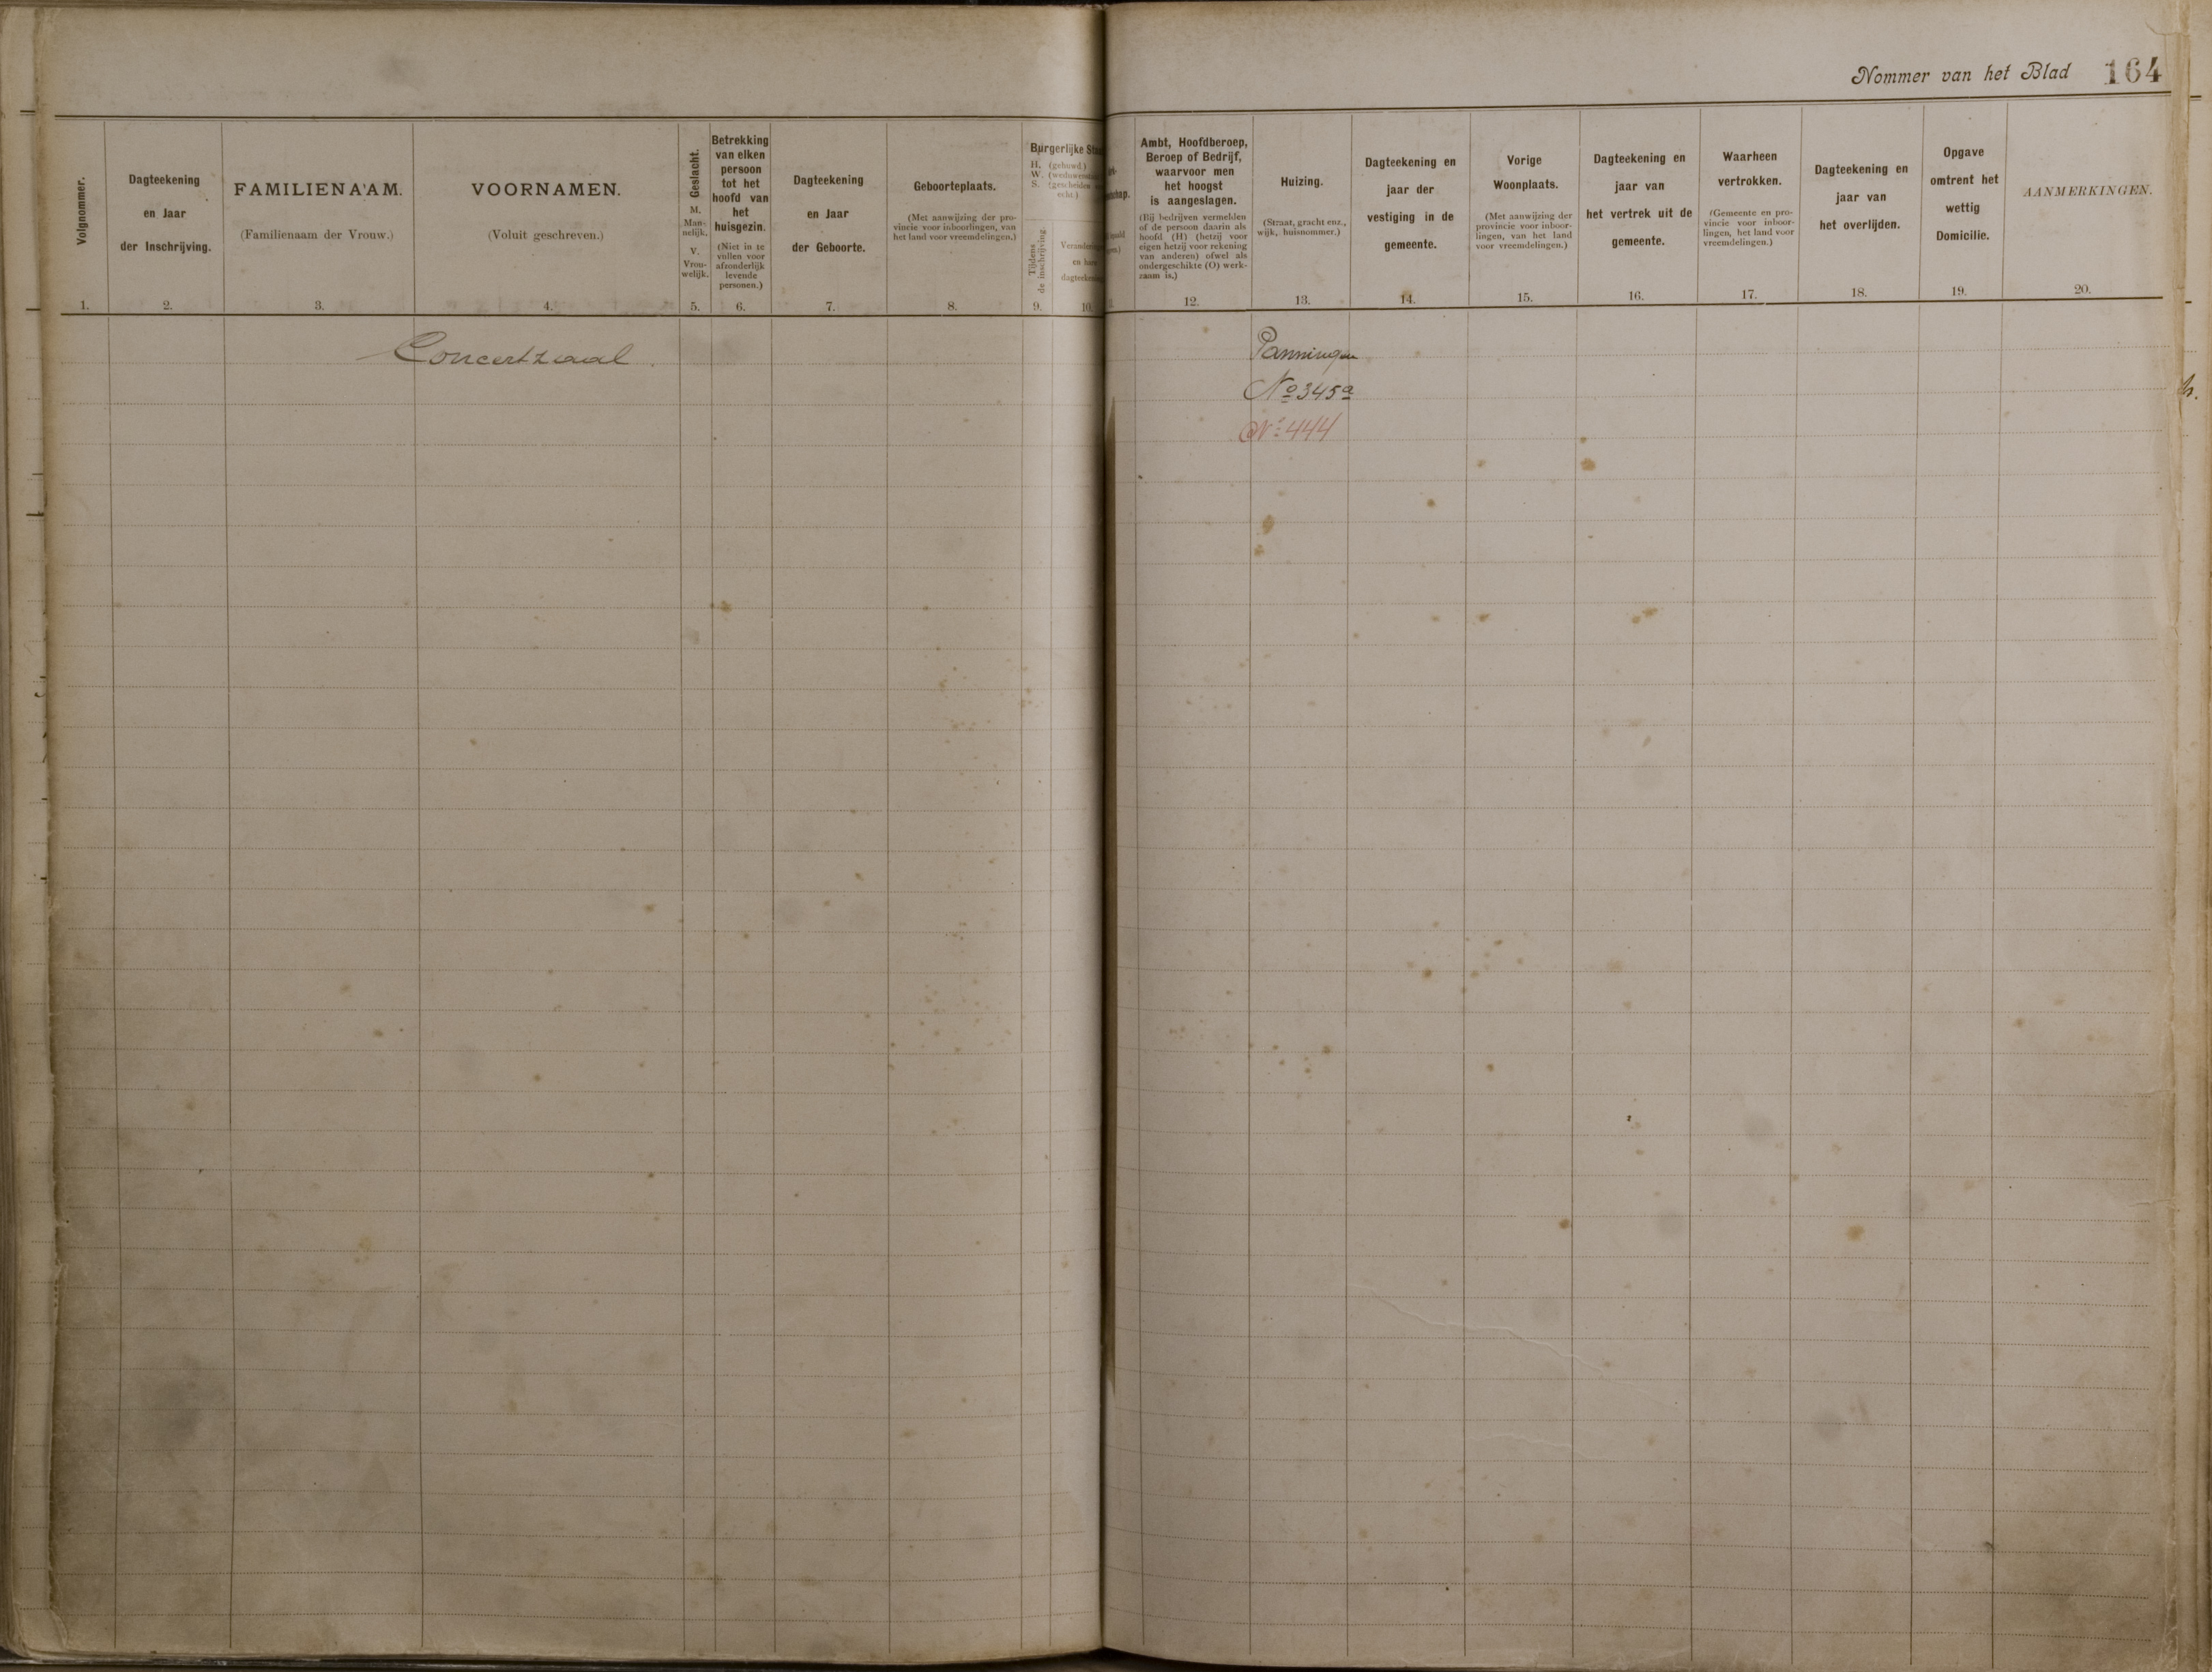 Nommer van het Blad 164
Volgnommer.
1.
Dagteekening
en Jaar
der Inschrijving.
2.
FAMILIENAAM.
(Familienaam der Vrouw.)
3.
VOORNAMEN.
(Voluit geschreven.)
4.
Geslacht.
M.
Man-
nelijk.
V.
Vrou-
welijk.
5.
Betrekking
van elken
persoon
tot het
hoofd van
het
huisgezin.
(Niet in te
vullen voor
afzonderlijk
levende
personen.)
6.
Dagteekening
en Jaar
der Geboorte.
7.
Geboorteplaats.
(Met aanwijzing der pro-
vincie voor inboorlingen, van
het land voor vreemdelingen.)
8.
Burgerlijke
H. (gehuwd.)
W.
S. (gescheiden
echt.)
Tijdens
de inschrijving.
9.
en
10.
Ambt, Hoofdberoep,
Beroep of Bedrijf,
waarvoor men
het hoogst
is aangeslagen.
(Bij bedrijven vermelden
of de persoon daarin als
hoofd (H) (hetzij voor
eigen hetzij voor rekening
van anderen) ofwel als
ondergeschikte (O) werk-
zaam is.)
12.
Huizing.
(Straat, gracht enz.,
wijk, huisnommer.)
13.
Dagteekening en
jaar der
vestiging in de
gemeente.
14.
Vorige
Woonplaats.
(Met aanwijzing der
provincie voor inboor-
lingen, van het land
voor vreemdelingen.)
15.
Dagteekening en
jaar van
het vertrek uit de
gemeente.
16.
Waarheen
vertrokken.
(Gemeente en pro-
vincie voor inboor-
lingen, het land voor
vreemdelingen.)
17.
Dagteekening en
jaar van
het overlijden.
18.
Opgave
omtrent het
wettig
Domicilie.
19.
AANMERKINGEN.
20.
Concertzaal
Panningen
No 345a
No 444